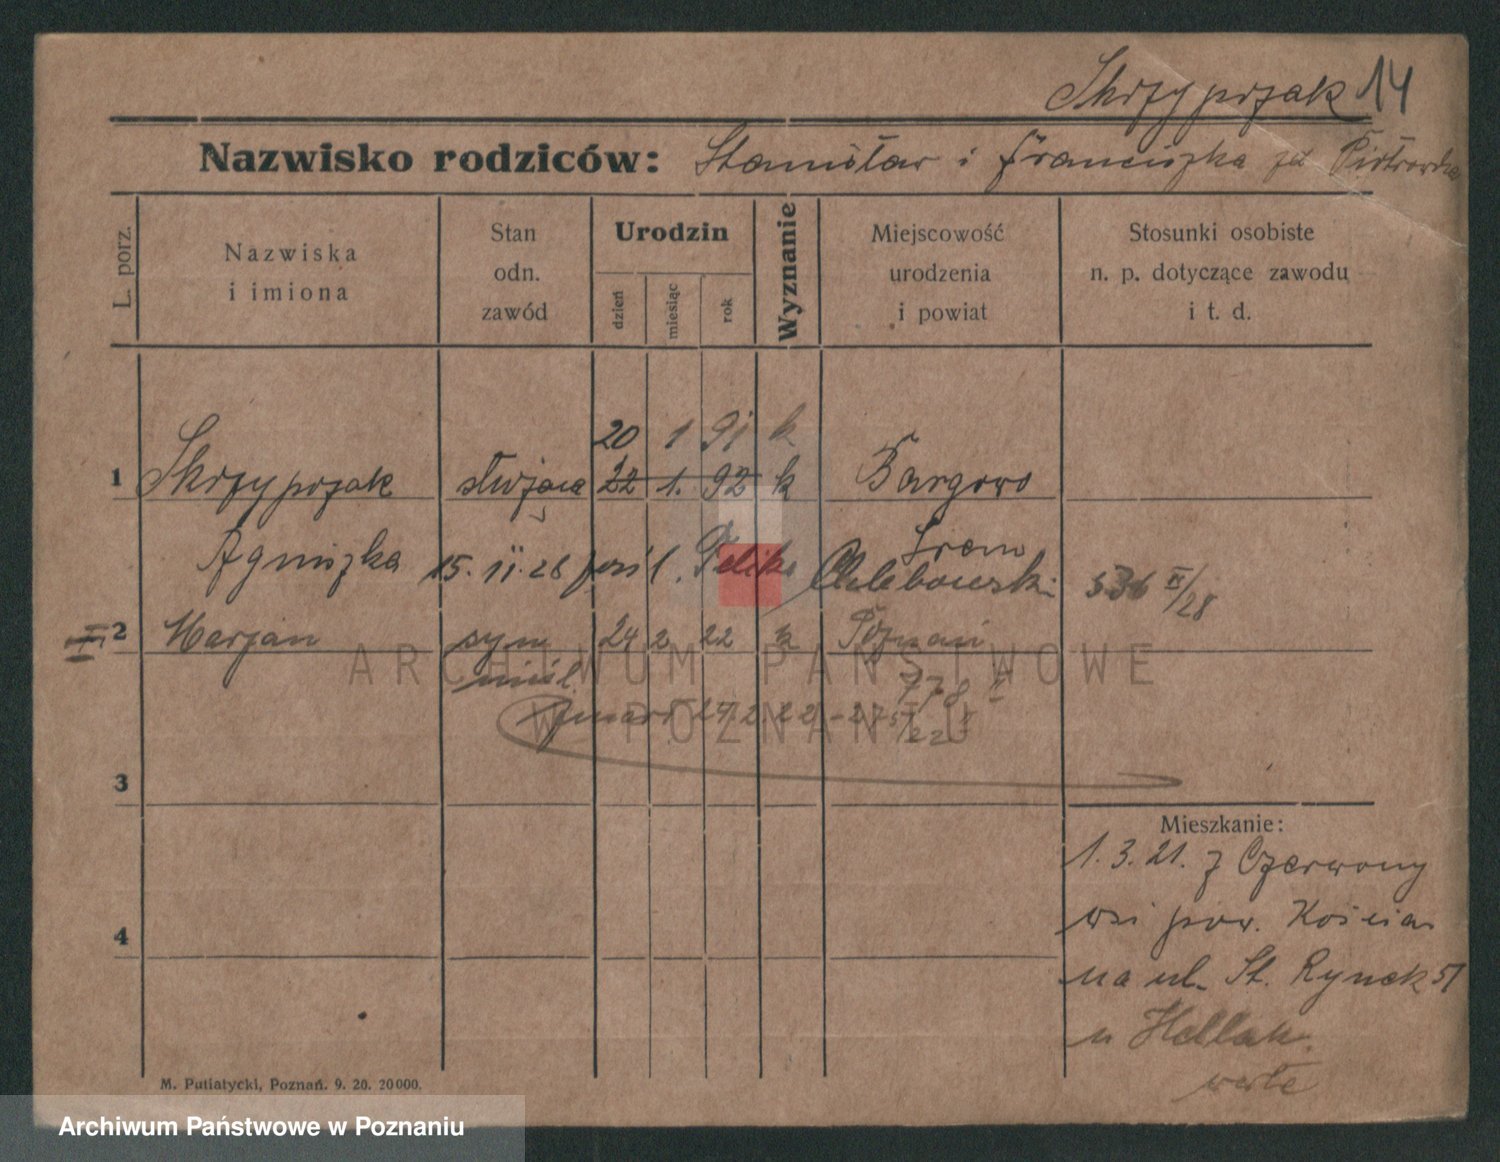 Skrzypczak 14
Nazwisko rodziców: Stanisław i Franciszka zd Piotrowska
L. porz.
Nazwiska
i imiona
Stan
odn.
zawód
Urodzin
dzień
miesiąc
rok
Wyznanie
Miejscowość
urodzenia
i powiat
Stosunki osobiste
n. p. dotyczące zawodu
i t. d.
20 1 91 k
1 Skrzypczak służąca 22 1. 92 k Bargowo
Agniszka 15. II. 28 Feliks Chlebowski Śrem
536 II/28
2 Marjan syn 24 2 22 k Poznań
nieśl. 778 I
zmarł 24 2 22
3
4
Mieszkanie:
1. 3. 21. z Czerwony
wsi pow. Kościan
na ul. St. Rynek 51
u Hellak.
verte
M. Putiatycki, Poznań. 9. 20. 20000.
ARCHIWUM PAŃSTWOWE
W POZNANIU
Archiwum Państwowe w Poznaniu